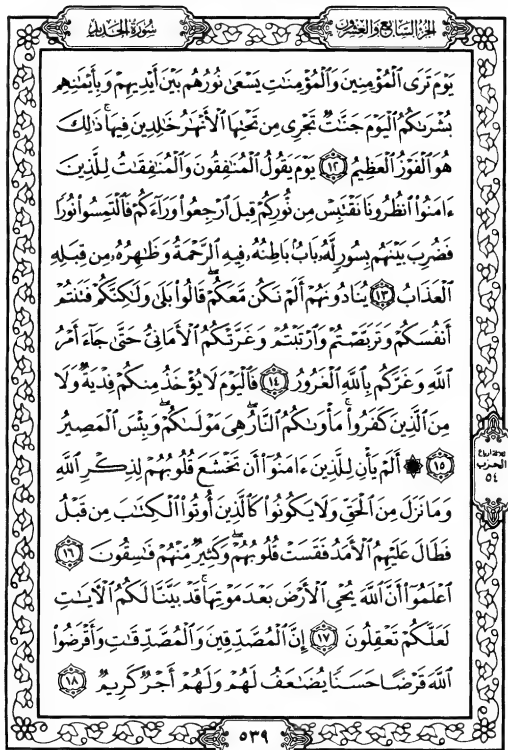 الجزء السابع والعشرون
سورة الحديد
يَوْمَ تَرَى ٱلْمُؤْمِنِينَ وَٱلْمُؤْمِنَٰتِ يَسْعَىٰ نُورُهُم بَيْنَ أَيْدِيهِمْ وَبِأَيْمَٰنِهِم
بُشْرَىٰكُمُ ٱلْيَوْمَ جَنَّٰتٌ تَجْرِى مِن تَحْتِهَا ٱلْأَنْهَٰرُ خَٰلِدِينَ فِيهَا ۚ ذَٰلِكَ
هُوَ ٱلْفَوْزُ ٱلْعَظِيمُ ١٢ يَوْمَ يَقُولُ ٱلْمُنَٰفِقُونَ وَٱلْمُنَٰفِقَٰتُ لِلَّذِينَ
ءَامَنُوا۟ ٱنظُرُونَا نَقْتَبِسْ مِن نُّورِكُمْ قِيلَ ٱرْجِعُوا۟ وَرَآءَكُمْ فَٱلْتَمِسُوا۟ نُورًا
فَضُرِبَ بَيْنَهُم بِسُورٍ لَّهُۥ بَابٌۢ بَاطِنُهُۥ فِيهِ ٱلرَّحْمَةُ وَظَٰهِرُهُۥ مِن قِبَلِهِ
ٱلْعَذَابُ ١٣ يُنَادُونَهُمْ أَلَمْ نَكُن مَّعَكُمْ ۖ قَالُوا۟ بَلَىٰ وَلَٰكِنَّكُمْ فَتَنتُمْ
أَنفُسَكُمْ وَتَرَبَّصْتُمْ وَٱرْتَبْتُمْ وَغَرَّتْكُمُ ٱلْأَمَانِىُّ حَتَّىٰ جَآءَ أَمْرُ
ٱللَّهِ وَغَرَّكُم بِٱللَّهِ ٱلْغَرُورُ ١٤ فَٱلْيَوْمَ لَا يُؤْخَذُ مِنكُمْ فِدْيَةٌ وَلَا
مِنَ ٱلَّذِينَ كَفَرُوا۟ ۚ مَأْوَىٰكُمُ ٱلنَّارُ ۖ هِىَ مَوْلَىٰكُمْ ۖ وَبِئْسَ ٱلْمَصِيرُ
١٥ ۞ أَلَمْ يَأْنِ لِلَّذِينَ ءَامَنُوٓا۟ أَن تَخْشَعَ قُلُوبُهُمْ لِذِكْرِ ٱللَّهِ
وَمَا نَزَلَ مِنَ ٱلْحَقِّ وَلَا يَكُونُوا۟ كَٱلَّذِينَ أُوتُوا۟ ٱلْكِتَٰبَ مِن قَبْلُ
فَطَالَ عَلَيْهِمُ ٱلْأَمَدُ فَقَسَتْ قُلُوبُهُمْ ۖ وَكَثِيرٌ مِّنْهُمْ فَٰسِقُونَ ١٦
ٱعْلَمُوٓا۟ أَنَّ ٱللَّهَ يُحْىِ ٱلْأَرْضَ بَعْدَ مَوْتِهَا ۚ قَدْ بَيَّنَّا لَكُمُ ٱلْءَايَٰتِ
لَعَلَّكُمْ تَعْقِلُونَ ١٧ إِنَّ ٱلْمُصَّدِّقِينَ وَٱلْمُصَّدِّقَٰتِ وَأَقْرَضُوا۟
ٱللَّهَ قَرْضًا حَسَنًا يُضَٰعَفُ لَهُمْ وَلَهُمْ أَجْرٌ كَرِيمٌ ١٨
ثلاثة أرباع
الحزب
٥٤
٥٣٩